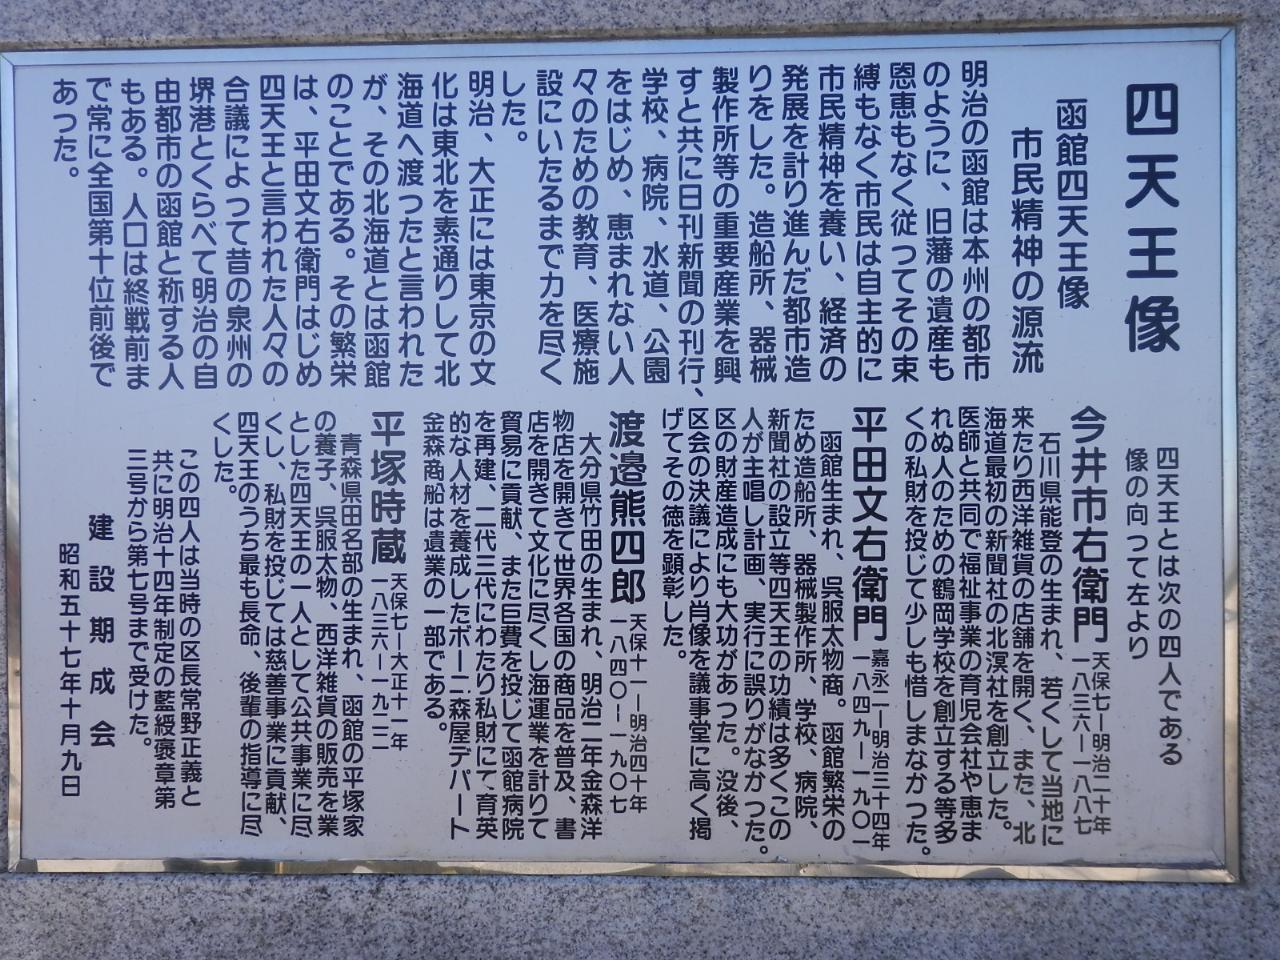 四天王像
函館四天王像
市民精神の源流
明治の函館は本州の都市
のように、旧藩の遺産も
恩恵もなく従つてその束
縛もなく市民は自主的に
市民精神を養い、経済の
発展を計り進んだ都市造
りをした。造船所、器械
製作所等の重要産業を興
すと共に日刊新聞の刊行、
学校、病院、水道、公園
をはじめ、恵まれない人
々のための教育、医療施
設にいたるまで力を尽く
した。
明治、大正には東京の文
化は東北を素通りして北
海道へ渡つたと言われた
が、その北海道とは函館
のことである。その繁栄
は、平田文右衛門はじめ
四天王と言われた人々の
合議によつて昔の泉州の
堺港とくらべて明治の自
由都市の函館と称する人
もある。人口は終戦前ま
で常に全国第十位前後で
あつた。
四天王とは次の四人である
像の向つて左より
今井市右衛門 天保七ー明治二十年 一八三六ー一八八七
石川県能登の生まれ、若くして当地に
来たり西洋雑貨の店舗を開く、また、北
海道最初の新聞社の北溟社を創立した。
医師と共同で福祉事業の育児会社や恵ま
れぬ人のための鶴岡学校を創立する等多
くの私財を投じて少しも惜しまなかつた。
平田文右衛門 嘉永二ー明治三十四年 一八四九ー一九〇一
函館生まれ、呉服太物商。函館繁栄の
ため造船所、器械製作所、学校、病院、
新聞社の設立等四天王の功績は多くこの
人が主唱し計画、実行に誤りがなかつた。
区の財産造成にも大功があつた。没後、
区会の決議により肖像を議事堂に高く掲
げてその徳を顕彰した。
渡邉熊四郎 天保十一ー明治四十年 一八四〇ー一九〇七
大分県竹田の生まれ、明治二年金森洋
物店を開きて世界各国の商品を普及、書
店を開きて文化に尽くし海運業を計りて
貿易に貢献、また巨費を投じて函館病院
を再建、二代三代にわたり私財にて育英
的な人材を養成したボーニ森屋デパート
金森商船は遺業の一部である。
平塚時蔵 天保七ー大正十一年 一八三六ー一九二二
青森県田名部の生まれ、函館の平塚家
の養子、呉服太物、西洋雑貨の販売を業
とした四天王の一人として公共事業に尽
くし、私財を投じては慈善事業に貢献、
四天王のうち最も長命、後輩の指導に尽
くした。
この四人は当時の区長常野正義と
共に明治十四年制定の藍綬褒章第
三号から第七号まで受けた。
建設期成会
昭和五十七年十月九日